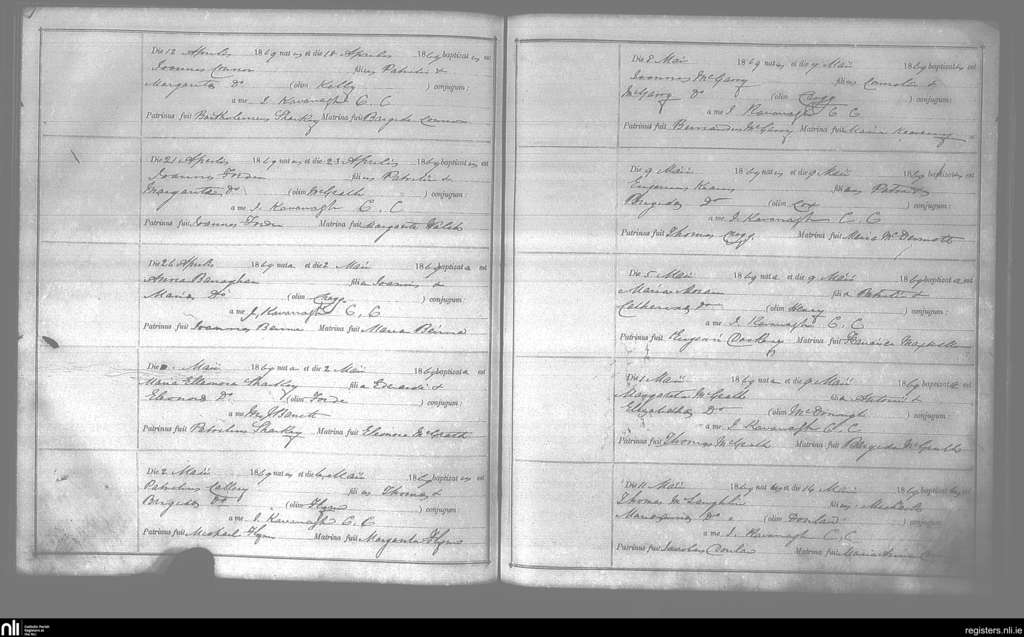 Die 12 Aprilis 1869 natus et die 18 Aprilis 1869 baptizatus est
Joannes Connor filius Patricii &
Margarita Do (olim Kelly) conjugum:
a me J. Kavanagh C. C.
Patrinus fuit Bartholomeus Sharkey Matrina fuit Brigida Connor
Die 21 Aprilis 1869 natus et die 23 Aprilis 1869 baptizatus est
Joannes Forde filius Patricii &
Margarita Do (olim McGrath) conjugum:
a me J. Kavanagh C. C
Patrinus fuit Joannes Forde Matrina fuit Margarita Walsh
Die 26 Aprilis 1869 nata et die 2 Maii 1869 baptizata est
Anna Banaghan filia Joannis &
Maria Do (olim Cregg) conjugum:
a me J. Kavanagh C. C.
Patrinus fuit Joannes Beirne Matrina fuit Maria Beirne
Die Maii 1869 nata et die 2 Maii 1869 baptizata est
Maria Elleanora Sharkey filia Edwardi &
Eleonora Do (olim Forde) conjugum:
a me
Patrinus fuit Patricius Sharkey Matrina fuit Eleonora McGrath
Die 2 Maii 1869 natus et die Maii 1869 baptizatus est
Patricius Callery filius Thomas &
Brigida Do (olim Flynn) conjugum:
a me J. Kavanagh C. C
Patrinus fuit Michael Flynn Matrina fuit Margarita Flynn
Die 8 Maii 1869 natus et die 9 Maii 1869 baptizatus est
Joannes McGarry filius Cornelii &
McGarry Do (olim Cregg) conjugum:
a me J. Kavanagh C C
Patrinus fuit Bernardus McGarry Matrina fuit Maria
Die 9 Maii 1869 natus et die 9 Maii 1869 baptizatus est
Eugenius filius Patricii
Brigida Do (olim Cox) conjugum:
a me J. Kavanagh C. C
Patrinus fuit Thomas Cregg. Matrina fuit Maria McDermott
Die 5 Maii 1869 nata et die 9 Maii 1869 baptizata est
Maria Moran filia Patricii &
Catherina Do (olim Henry) conjugum:
a me J. Kavanagh C. C
Patrinus fuit Matrina fuit
Die 1 Maii 1869 nata et die 9 Maii 1869 baptizata est
Margarita McGrath filia Antonii &
Elizabetha Do (olim McDonough) conjugum:
a me J. Kavanagh C. C
Patrinus fuit Thomas McGrath Matrina fuit Brigida McGrath
Die 11 Maii 1869 natus et die 14 Maii 1869 baptizatus est
Thomas McLaughlin filius Michael
Do (olim Dowlan) conjugum:
a me J. Kavanagh C. C
Patrinus fuit Matrina fuit Maria Anna
nli
Catholic Parish
Registers at
the NLI
registers.nli.ie